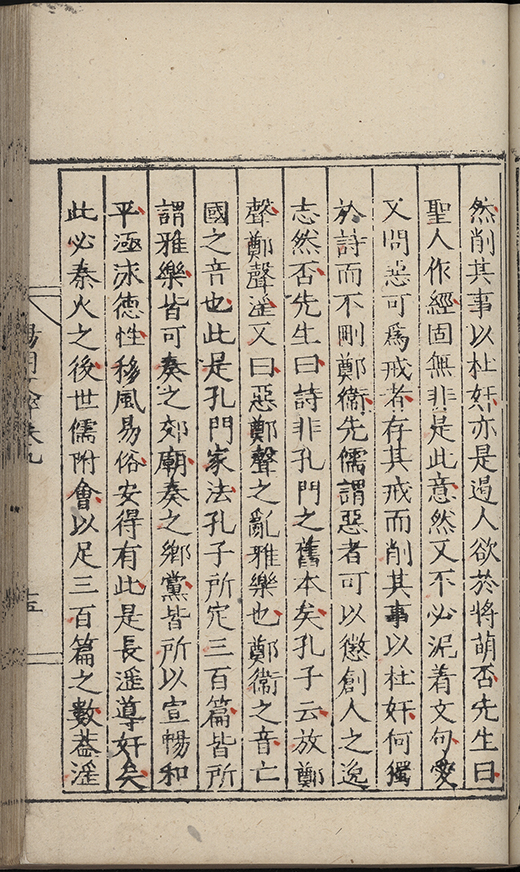 然削其事以杜奸亦是遏人欲於將萌否先生曰
聖人作經固無非是此意然又不必泥着文句愛
又問惡可爲戒者存其戒而削其事以杜奸何獨
於詩而不刪鄭衞先儒謂惡者可以懲創人之逸
志然否先生曰詩非孔門之舊本矣孔子云放鄭
聲鄭聲滛又曰惡鄭聲之亂雅樂也鄭衞之音亡
國之音也此是孔門家法孔子所定三百篇皆所
謂雅樂皆可奏之郊廟奏之鄉黨皆所以宣暢和
平涵泳德性移風易俗安得有此是長滛導奸矣
此必秦火之後世儒附會以足三百篇之數葢滛